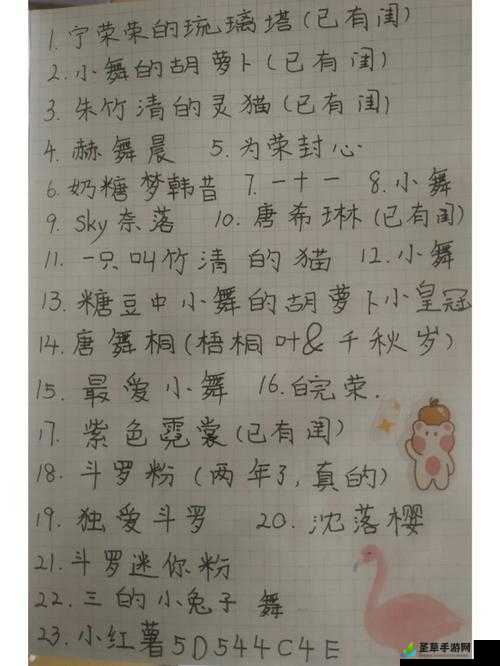 1. 宁荣荣的琉璃塔(已有闺)
2. 小舞的胡萝卜(已有闺)
3. 朱竹清的灵猫(已有闺)
4. 赫舞晨 5. 为荣封心
6. 奶糖梦韩昔 7. 一十一 8. 小舞
9. sky奈落 10. 唐希琳(已有闺)
11. 一只叫竹清的猫 12. 小舞
13. 糖豆中小舞的胡萝卜小皇冠
14. 唐舞桐(梧桐叶&千秋岁)
15. 最爱小舞 16. 白完荣.
17. 紫色霓裳(已有闺)
18. 斗罗粉(两年了,真的)
19. 独爱斗罗 20. 沈落樱
21. 斗罗迷你粉
22. 三的小兔子 舞
23. 小红薯5D544C4E
圣草手游网